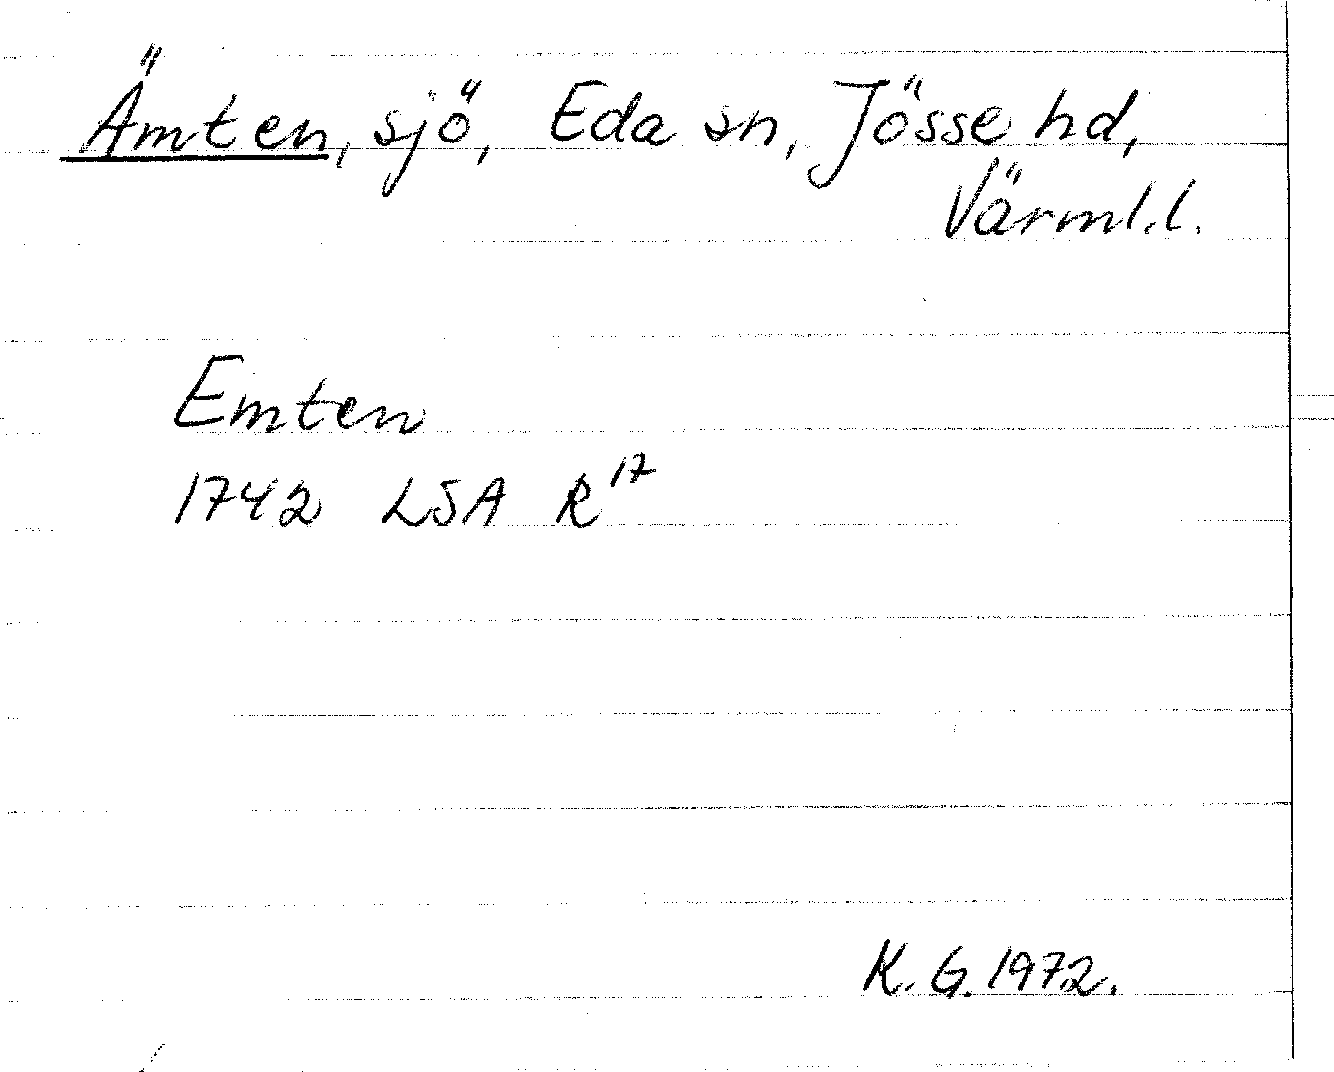 Ämten, sjö, Eda sn, Jösse hd,
Värml.l.
Emten
1742 LSA R17
K.G.1972.